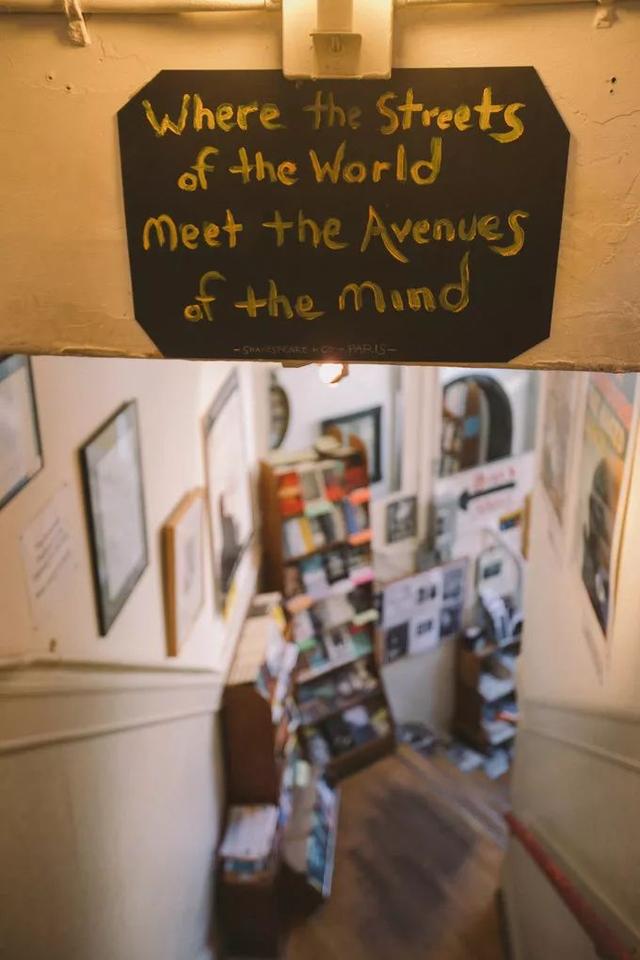 Where the Streets
of the World
meet the Avenues
of the mind
– SHAKESPEARE & CO – PARIS –